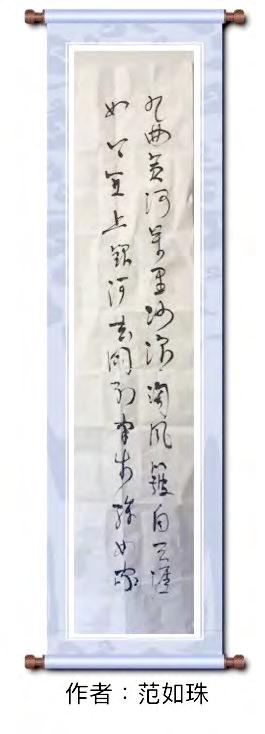 九曲黃河萬里沙浪淘風簸自天涯
如今直上銀河去同到牽牛織女家
作者：范如珠